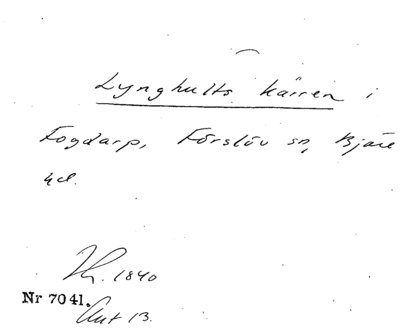 Lynghults kärren i
Fogdarp, Förslöv sn, Bjäre
hd.
1840
Nr 7041.
Ant 13.